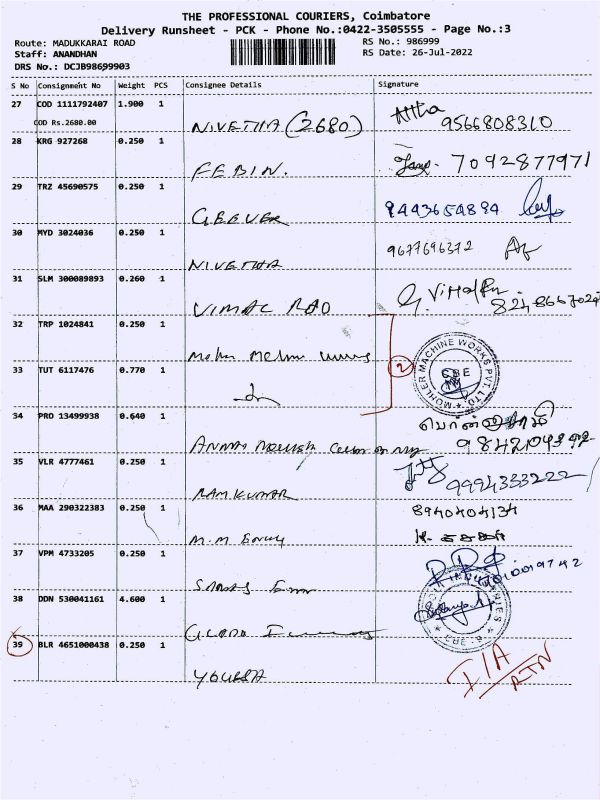 THE PROFESSIONAL COURIERS, Coimbatore
Delivery Runsheet - PCK - Phone No.:0422-3505555 - Page No.:3
Route: MADUKKARAI ROAD
RS No.: 986999
Staff: ANANDHAN
RS Date: 26-Jul-2022
DRS No.: DCJB98699903
S No Consignment No Weight PCS Consignee Details Signature
27 COD 1111792407 1.900 1
COD Rs.2680.00
NIVETHA (2680) 9566808310
28 KRG 927268 0.250 1
FEBIN. 7092877971
29 TRZ 45690575 0.250 1
GEEVER 9443654894
30 MYD 3024036 0.250 1
NIVETHA 9677696372
31 SLM 300089893 0.260 1
VIMAL RAO
32 TRP 1024841 0.250 1
2
MOHLER MACHINE WORKS PVT. LTD. CBE
33 TUT 6117476 0.770 1
34 PRD 13499938 0.640 1
9842104392
35 VLR 4777461 0.250 1
RAMKUMAR 9994333222
36 MAA 290322383 0.250 1
M.M 8940404134
37 VPM 4733205 0.250 1
38 DDN 530041161 4.600 1
INDUSTRIES
39 BLR 4651000438 0.250 1
I/A
RTN